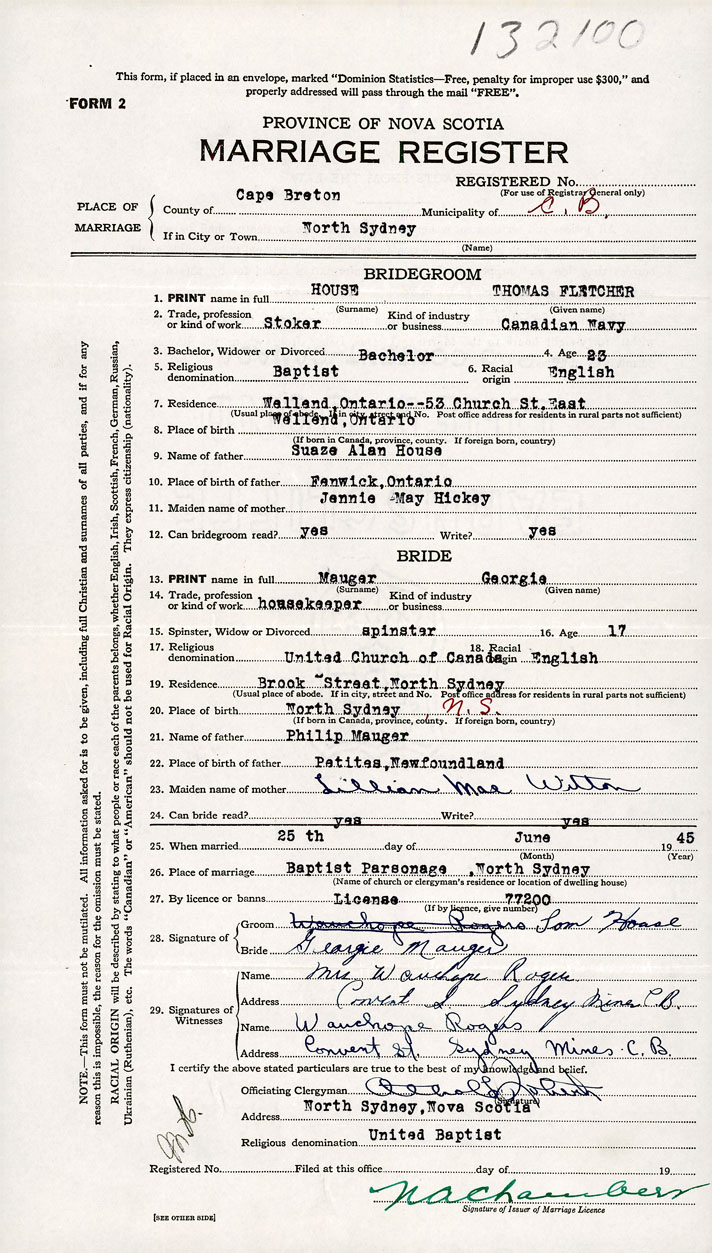 132100
This form, if placed in an envelope, marked "Dominion Statistics—Free, penalty for improper use $300," and
properly addressed will pass through the mail "FREE".
FORM 2
PROVINCE OF NOVA SCOTIA
MARRIAGE REGISTER
REGISTERED No.
(For use of Registrar General only)
PLACE OF MARRIAGE
County of Cape Breton Municipality of C. B.
If in City or Town North Sydney
(Name)
BRIDEGROOM
1. PRINT name in full HOUSE THOMAS FLETCHER
(Surname) (Given name)
2. Trade, profession or kind of work Stoker Kind of industry or business Canadian Navy
3. Bachelor, Widower or Divorced Bachelor 4. Age 23
5. Religious denomination Baptist 6. Racial origin English
7. Residence Wellend, Ontario--53 Church St. East
(Usual place of abode. If in city, street and No. Post office address for residents in rural parts not sufficient)
8. Place of birth Wellend, Ontario
(If born in Canada, province, county. If foreign born, country)
9. Name of father Suaze Alan House
10. Place of birth of father Fenwick, Ontario
11. Maiden name of mother Jennie May Hickey
12. Can bridegroom read? yes Write? yes
BRIDE
13. PRINT name in full Mauger Georgie
(Surname) (Given name)
14. Trade, profession or kind of work housekeeper Kind of industry or business
15. Spinster, Widow or Divorced spinster 16. Age 17
17. Religious denomination United Church of Canada 18. Racial origin English
19. Residence Brook Street, North Sydney
(Usual place of abode. If in city, street and No. Post office address for residents in rural parts not sufficient)
20. Place of birth North Sydney, N. S.
(If born in Canada, province, county. If foreign born, country)
21. Name of father Philip Mauger
22. Place of birth of father Petites, Newfoundland
23. Maiden name of mother Lillian Mae Witton
24. Can bride read? yes Write? yes
25. When married 25 th day of June 1945
(Month) (Year)
26. Place of marriage Baptist Parsonage, North Sydney
(Name of church or clergyman's residence or location of dwelling house)
27. By licence or banns License 77200
(If by licence, give number)
28. Signature of
Groom Wauchope Rogers Tom House
Bride Georgie Mauger
29. Signatures of Witnesses
Name Mrs Wauchope Rogers
Address Convent St Sydney Mines C.B.
Name Wauchope Rogers
Address Convent St. Sydney Mines C. B.
I certify the above stated particulars are true to the best of my knowledge and belief.
Officiating Clergyman
(Signature)
Address North Sydney, Nova Scotia
Religious denomination United Baptist
Registered No. Filed at this office day of 19
N A Chambers
Signature of Issuer of Marriage Licence
[SEE OTHER SIDE]
NOTE.—This form must not be mutilated. All information asked for is to be given, including full Christian and surnames of all parties, and if for any
reason this is impossible, the reason for the omission must be stated.
RACIAL ORIGIN will be described by stating to what people or race each of the parents belongs, whether English, Irish, Scottish, French, German, Russian,
Ukrainian (Ruthenian), etc. The words "Canadian" or "American" should not be used for Racial Origin. They express citizenship (nationality).